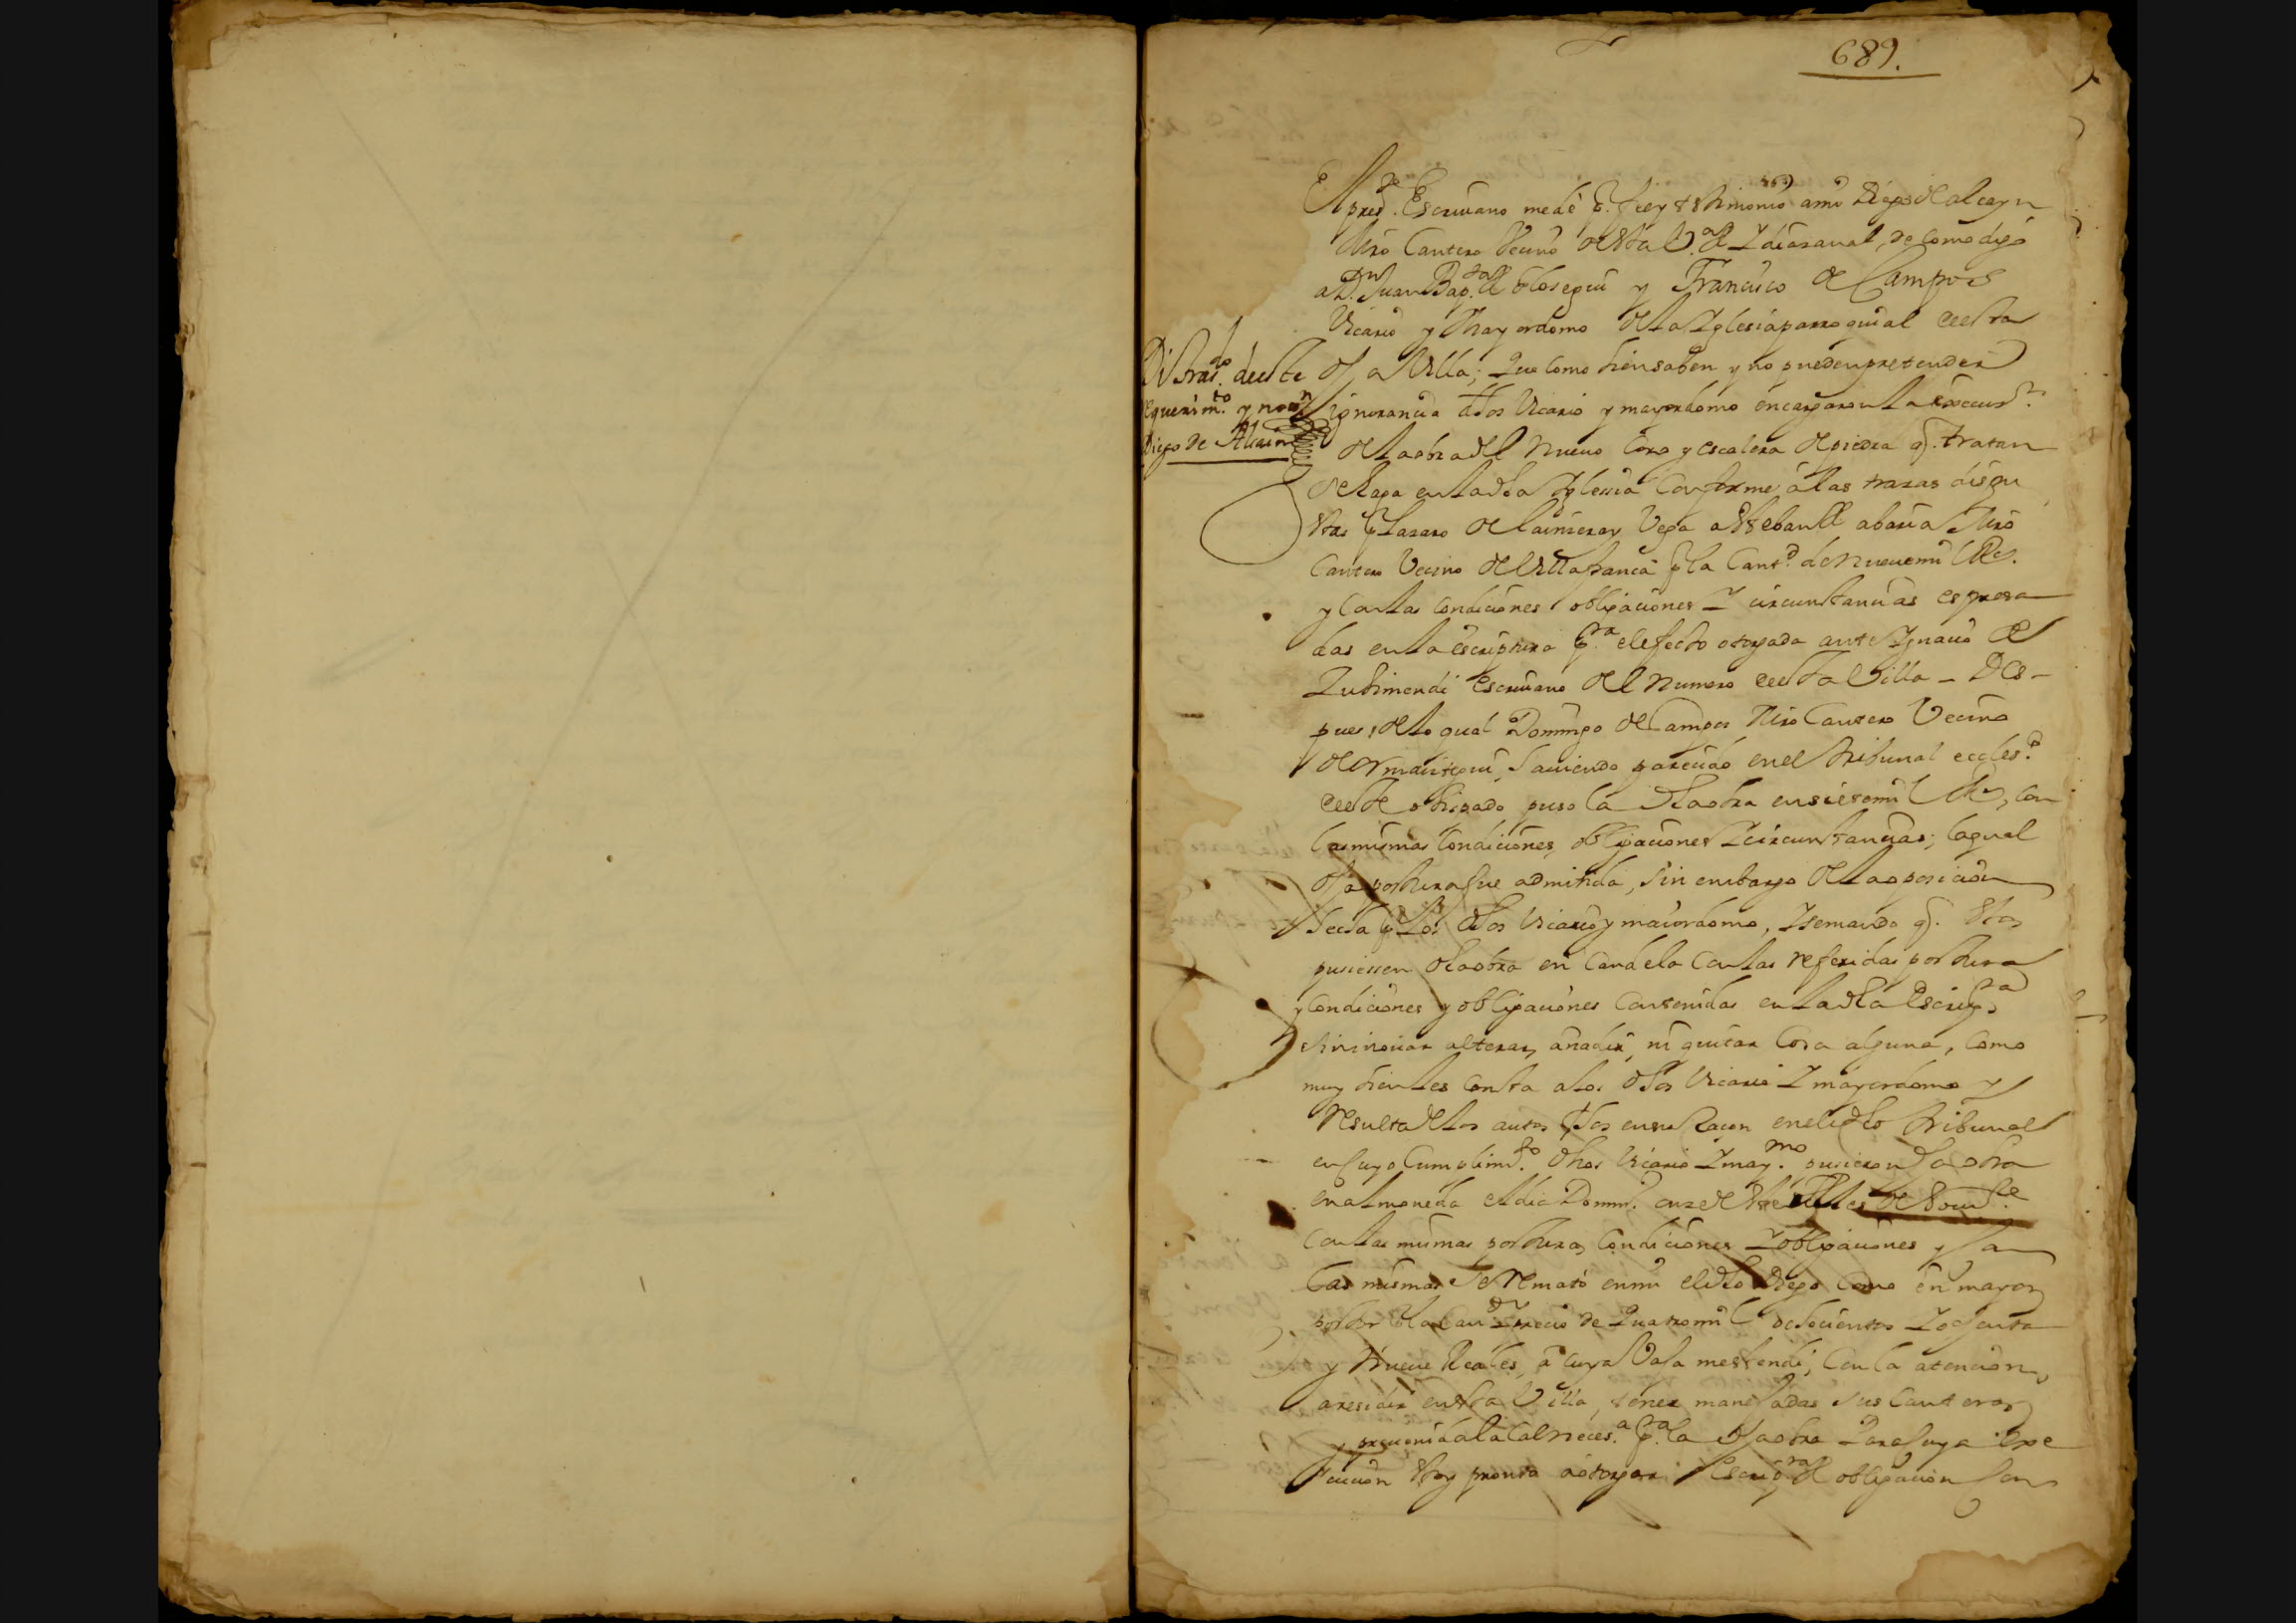 689.
El pres.te Escriuano me dé p.r fee y testimonio a mi Diego de Alcayn
Mro Cantero Vecino desta V.a de Idiazaual, de como digo
a D.n Juan Bap.ta de Olosegui y Francisco de Campos
Vicario y Mayordomo de la Iglesia parroquial desta
dha Villa; Que como bien saben y no pueden pretender
Di tras.do deeste
requerim.to y noti.n
Diego de Alcain
ignorancia dhos Vicario y mayordomo encargaron la execuz.n
de la obra del nueuo Coro y escalera de piedra q. tratan
de haga en la dha Iglesia Conforme a las trazas dispu
estas p.r Lazaro de Lainzera y Vega a Esteban de Abaria Mro
Cantero Vecino de Villafranca p.r la Cant.d de nueue mil R.s
y con las Condiciones obligaciones y circunstancias espresa
das en la escriptura p.ra el efecto otorgada ante Ignacio de
Zubimendi escriuano del numero deesta Villa - Des-
pues, de lo qual Domingo de Campos Mro Cantero Vecino
de Ormaiztegui, hauiendo parecido en el tribunal eccles.o
deeste obispado puso la dha obra en siete mil R.s, con
las mismas Condiciones, obligaciones y circunstancias; la qual
dha postura fue admitida, sin embargo de la oposicion
hecha p.r los dhos Vicario y maiordomo, y se mando q. estos
pusiessen dha obra en Candela con las referidas postura
y Condiciones y obligaciones Contenidas en la dha Escrip.ra
sin inouar alterar, añadir, ni quitar Cosa alguna, Como
muy bien les Consta a los dhos Vicario y mayordomo y
resulta de los autos fhos en su razon en el dho tribunal
en Cuyo Cumplim.to dhos Vicario y may.mo pusieron dha obra
en almoneda el dia Dom.o onze de este
con las mismas postura, Condiciones y obligaciones y con
las mismas se remató en mi el dho Diego Como en mayor
postor p.r la can.d y precio de quatro mil ochocientos y ochenta
y Nueue Reales, a Cuya baja me estendi, Con la atencion,
a residir en esta Villa, tener manejadas sus Canteras
y preuenida la Cal neces.a p.a la dha obra Para Cuya exe
cucion estoy pronto a otorgar Escrip.ra de obligacion con